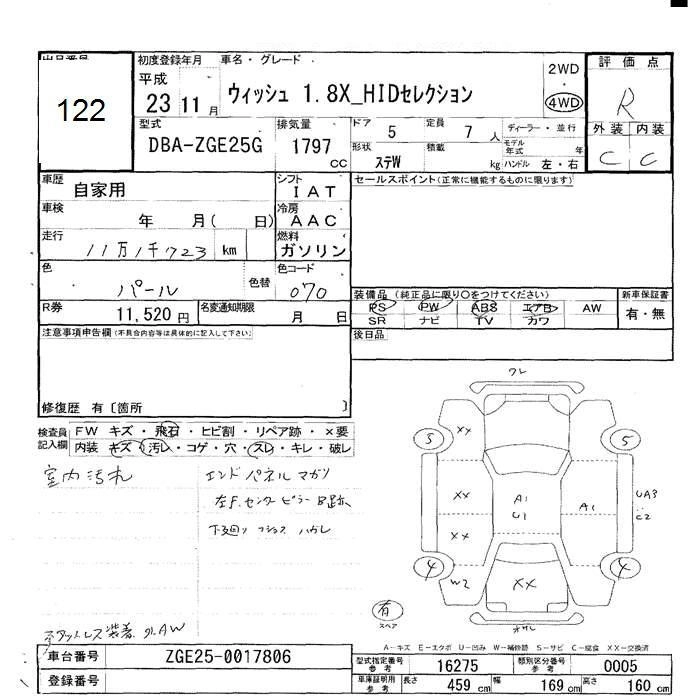 出品番号
122
初度登録年月
平成
23 11 月
車名・グレード
ウィッシュ 1.8X_HIDセレクション
2WD
・
4WD
評価点
R
外装 内装
C C
型式
DBA-ZGE25G
排気量
1797
CC
ドア
5
定員
7 人
形状
ステW
積載
kg
ディーラー・並行
モデル年式 年
ハンドル 左・右
車歴
自家用
シフト
IAT
車検
年 月( 日)
冷房
AAC
走行
11万1千723 km
燃料
ガソリン
色
パール
色替
色コード
070
R券
11,520 円
名変通知期限
月 日
セールスポイント(正常に機能するものに限ります)
装備品 (純正品に限り○をつけてください)
PS PW ABS エアB AW
SR ナビ TV カワ
新車保証書
有・無
後日品
注意事項申告欄(不具合内容等は具体的に記入して下さい)
修復歴 有〔箇所 〕
検査員記入欄
FW キズ・飛石・ヒビ割・リペア跡・×要
内装 キズ・汚レ・コゲ・穴・スレ・キレ・破レ
室内汚れ
エンドパネルマガリ
左F.センターピラー
下廻り ハガレ
装着 AW
ワレ
5 XX 5
XX A1 U1 A1 UA3 C2
XX
4 W2 XX 4
有
スペア
A-キズ E-エクボ U-凹み W-補修跡 S-サビ C-腐食 XX-交換済
車台番号
ZGE25-0017806
登録番号
型式指定番号
参考
16275
類別区分番号
参考
0005
車庫証明用
参考
長さ 459 cm
幅 169 cm
高さ 160 cm